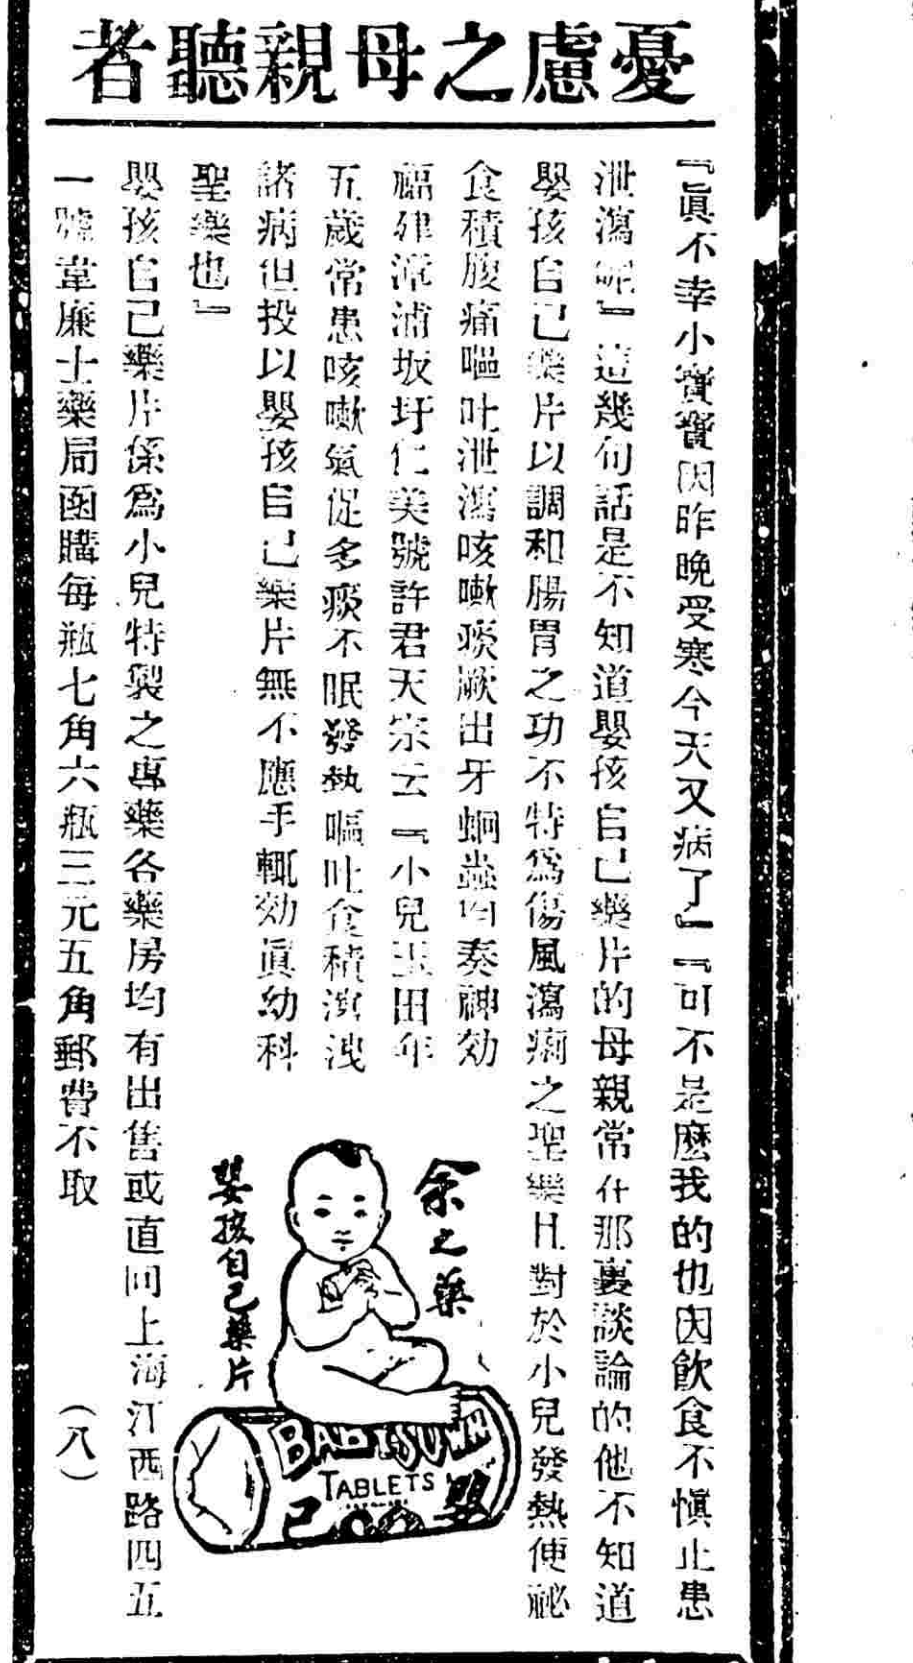 憂慮之母親聽者
『眞不幸小寶寶因昨晚受寒今天又病了』『可不是麼我的也因飲食不愼止患
泄瀉呢』這幾句話是不知道嬰孩自己藥片的母親常在那裏談論的他不知道
嬰孩自己藥片以調和腸胃之功不特爲傷風瀉痢之聖藥且對於小兒發熱便祕
食積腹痛嘔吐泄瀉咳嗽痰厥出牙蛔蟲均奏神効
福建漳浦坂圩仁美號許君天宗云『小兒玉田年
五歲常患咳嗽氣促多痰不眠發熱嘔吐食積瀉洩
諸病但投以嬰孩自己藥片無不應手輒効眞幼科
聖藥也』
嬰孩自己藥片係爲小兒特製之專藥各藥房均有出售或直向上海江西路四五
一號韋廉士藥局函購每瓶七角六瓶三元五角郵費不取
(八)
余之藥
嬰孩自己藥片
BABY'S OWN
TABLETS
己
嬰